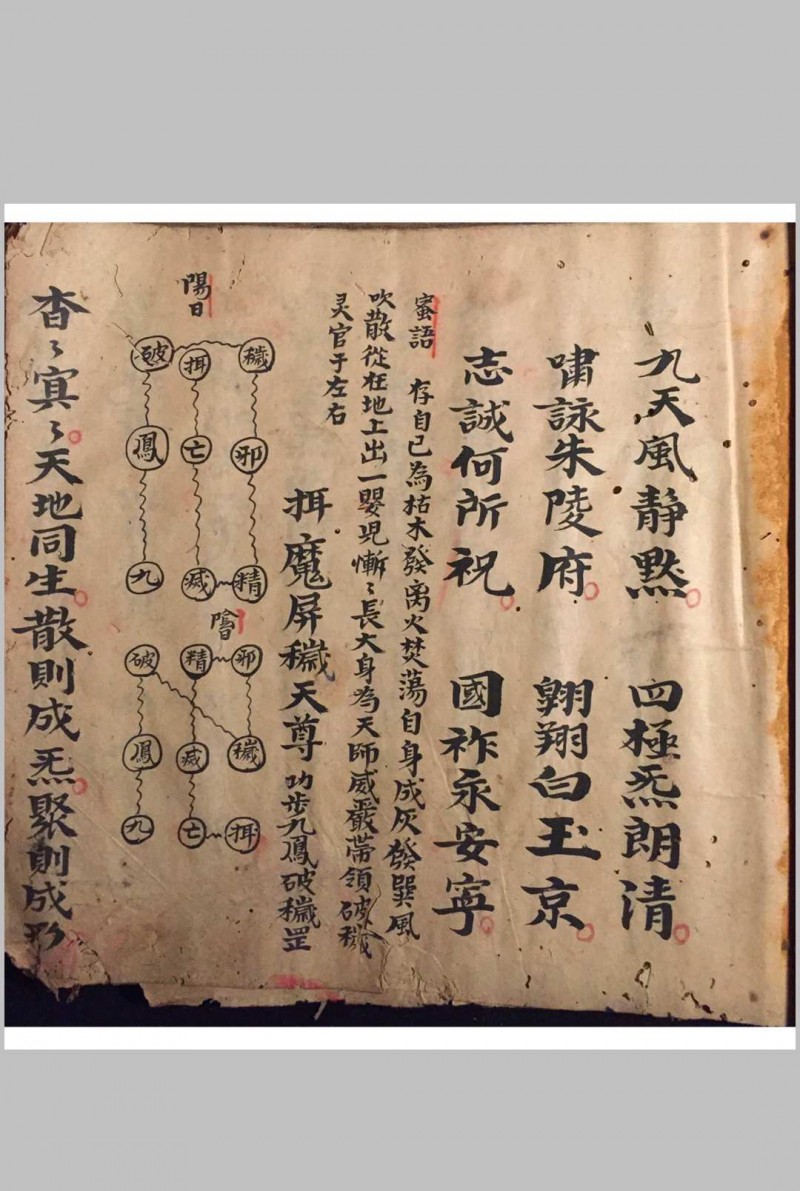 九天風静黙 四極炁朗清
嘯詠朱陵府 翱翔白玉京
志誠何所祝 國祚永安寧
蜜語 存自己為枯木發离火焚蕩自身成灰發巽風
吹散從在地上出一嬰児慚〻長大身為天師威嚴帶領破穢
灵官于左右
挕魔屏穢天尊 功步九鳳破穢罡
陽日
穢 挕 破
邪 亡 鳳
精 滅 九
陰日
邪 精 破
穢 滅 鳳
挕 亡 九
杳〻㝠〻天地同生散則成炁聚則成形